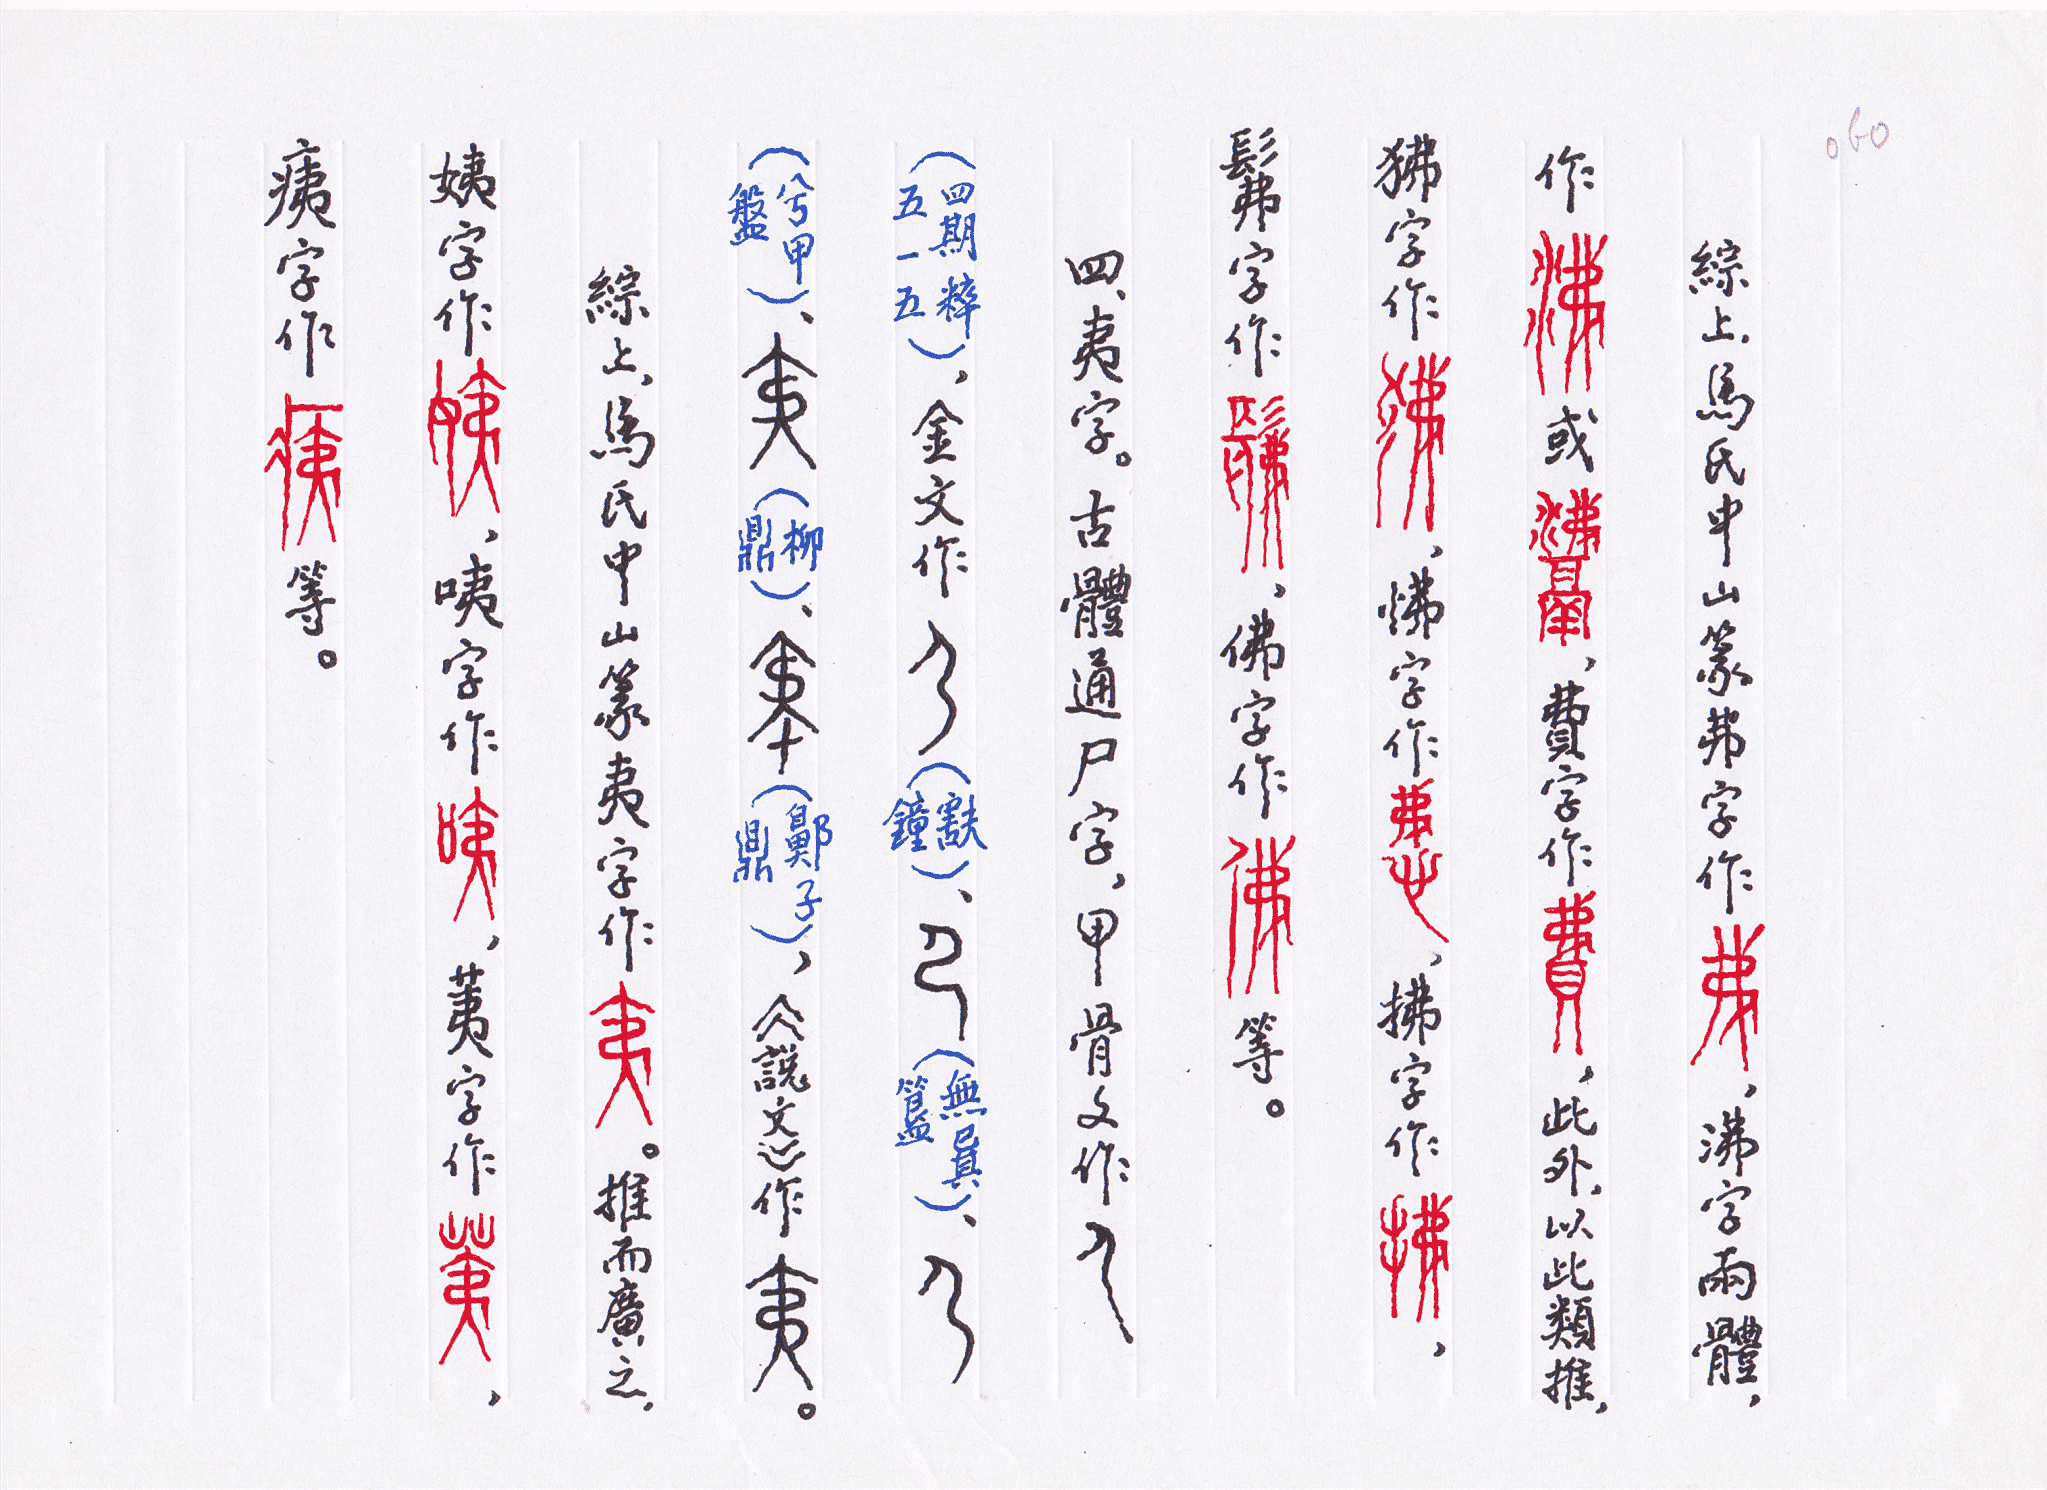 060
綜上、馬氏中山篆弗字作弗，沸字兩體，
作沸或，費字作費，此外，以此類推，
狒字作狒，怫字作怫，拂字作拂，
髴字作髴，佛字作佛等。
四、夷字。古體通尸字，甲骨文作尸
（四期粹五一五），金文作尸（㝬鐘）、尸（無㠱簋）、尸
（兮甲盤）、夷（柳鼎）、（鄸子鼎），《說文》作夷。
綜上、馬氏中山篆夷字作夷。推而廣之，
姨字作姨，咦字作咦，荑字作荑，
痍字作痍等。